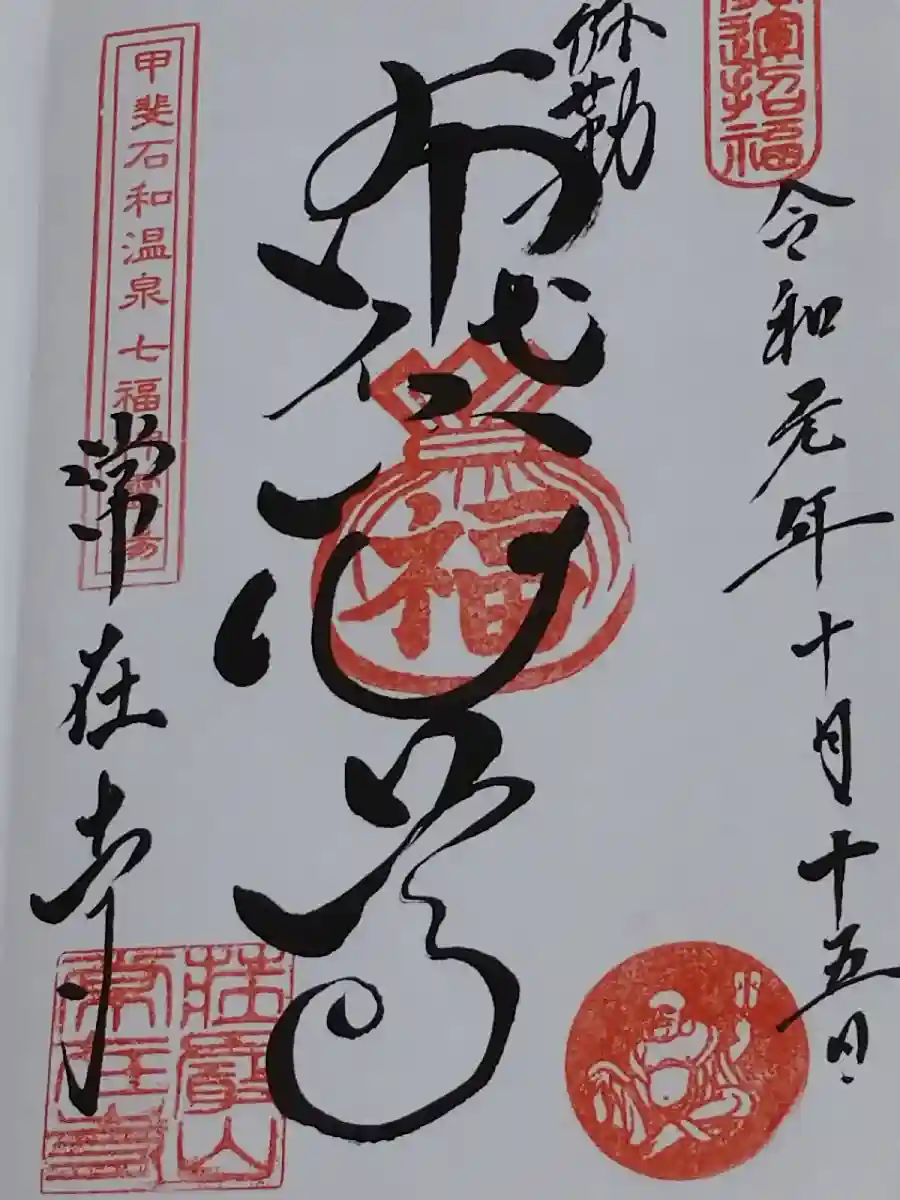 運招福
令和元年十月十五日
弥勒
布袋尊
福
甲斐石和温泉七福
常在寺
常在寺